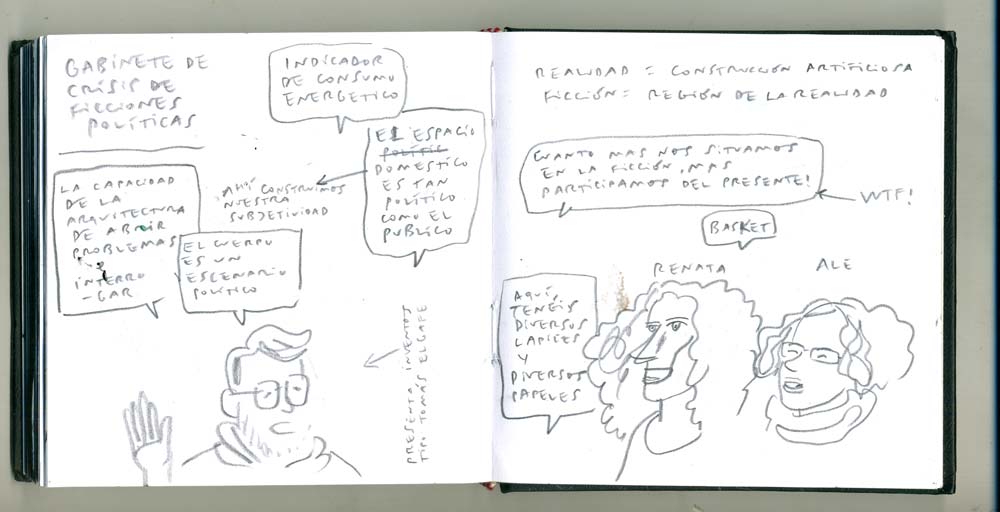 GABINETE DE
CRISIS DE
FICCIONES
POLÍTICAS
INDICADOR
DE CONSUMO
ENERGETICO
EL ESPACIO
POLÍTIC
DOMESTICO
ES TAN
POLÍTICO
COMO EL
PUBLICO
AHÍ CONSTRUIMOS
NUESTRA
SUBJETIVIDAD
LA CAPACIDAD
DE LA
ARQUITECTURA
DE ABRIR
PROBLEMAS
INTERRO
-GAR
EL CUERPO
ES UN
ESCENARIO
POLÍTICO
PRESENTA INVENTOS
TIPO TOMÁS ELGAFE
REALIDAD = CONSTRUCCION ARTIFICIOSA
FICCIÓN = REGIÓN DE LA REALIDAD
CUANTO MAS NOS SITUAMOS
EN LA FICCIÓN, MAS
PARTICIPAMOS DEL PRESENTE!
WTF!
BASKET
RENATA
ALE
AQUÍ,
TENÉIS
DIVERSOS
LAPICES
Y
DIVERSOS
PAPELES